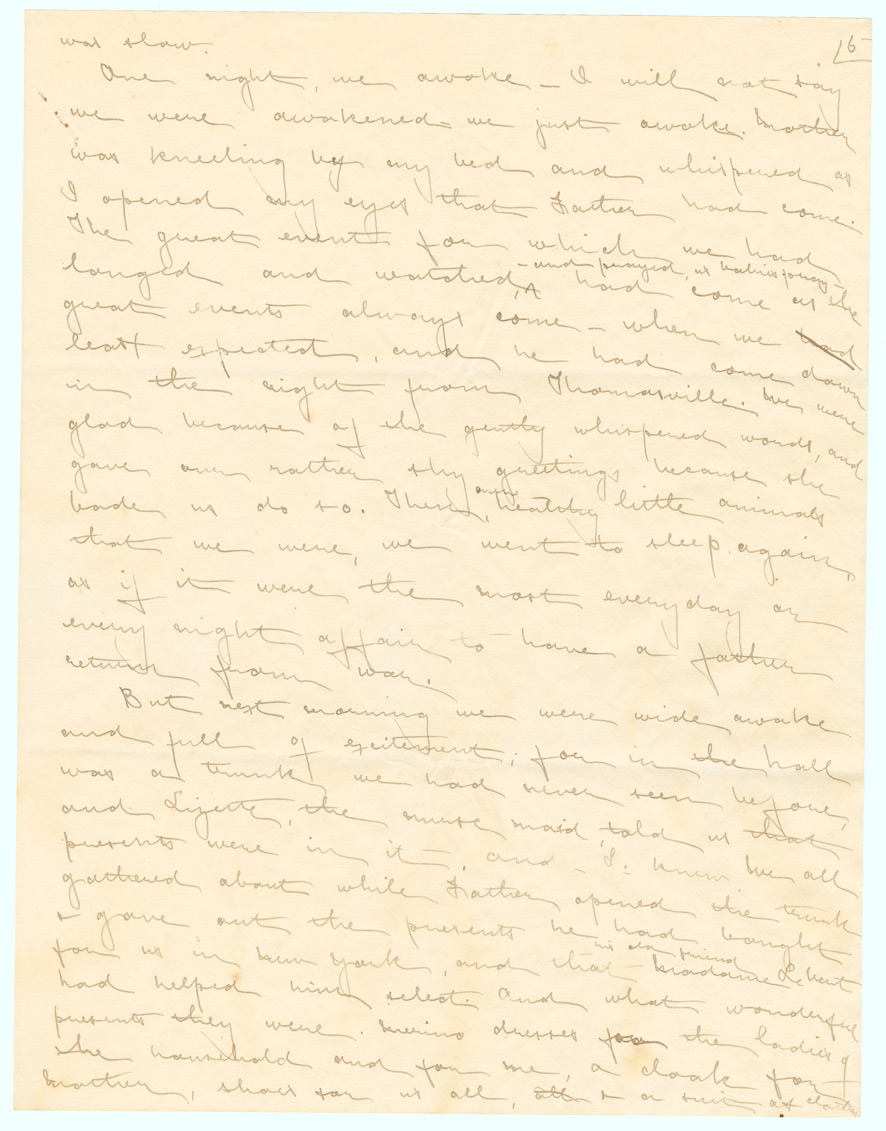 15
was slow.
One night, we awoke – I will not say
we were awakened – we just awoke. Mother
was kneeling by my bed and whispered as
I opened my eyes that Father had come.
The great event for which we had
– and prayed, as babies pray –
longed and watched, ^ had come as the
great events always come – when we had
least expected, and he had come down
in the night from Thomasville. We were
glad because of the gently whispered words, and
gave our rather shy greetings because she
bade us do so. Then, healthy little animals
that we were, we went to sleep again,
as if it were the most everyday or
every night affair to have a father
return from war.
But next morning we were wide awake
and full of excitement; for in the hall
was a trunk we had never seen before,
and Lizette, the nurse maid, told us that
presents were in it –, and I knew. We all
gathered about while Father opened the trunk
& gave out the presents he had bought
his old friend
for us in New York, and that – Madame Le Vert
had helped him select. And what wonderful
presents they were. Merino dresses for the ladies of
the household and for me, a cloak for
Mother, shoes for us all, & a suit of clothes